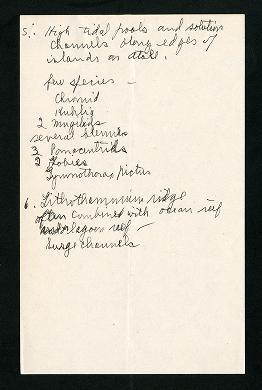 5. High tidal pools and solution
channels along edges of
islands on atoll.
few species —
Chromid
Kuhlia
2 Mugilids
several blennies
3 Pomacentrids
2 Gobies
Gymnothorax pictus
6. Lithothamnium ridge
often combined with ocean reef
lagoon reef —
Surge channels